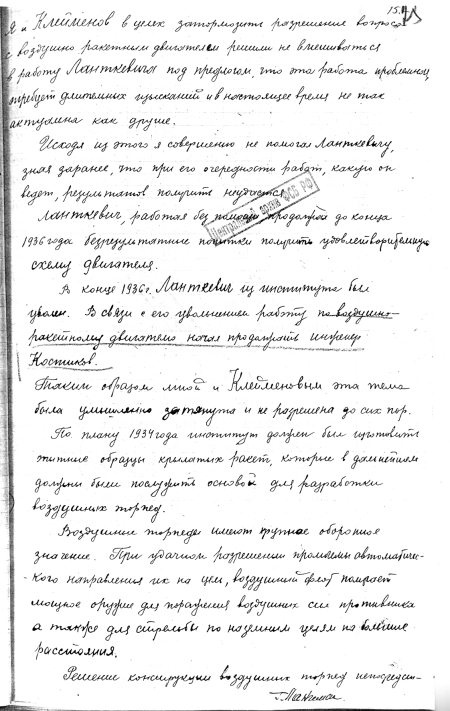 15.
Я и Клейменов в целях затормозить разрешение вопроса
с воздушно ракетным двигателем решили не вмешиваться
в работу Ланткевича под предлогом, что эта работа проблемная,
требует длительных изысканий и в настоящее время не так
актуальна как другие.
Исходя из этого я совершенно не помогал Ланткевичу,
зная заранее, что при его очередности работ, какую он
ведет, результатов получить не удастся.
Центральный архив ФСБ РФ
Ланткевич, работая без помощи продолжал до конца
1936 года безрезультатные попытки получить удовлетворительную
схему двигателя.
В конце 1936 г. Ланткевич из института был
уволен. В связи с его увольнением работу по воздушно-
ракетному двигателю начал продолжать инженер
Костиков.
Таким образом мной и Клейменовым эта тема
была умышленно затянута и не разрешена до сих пор.
По плану 1934 года институт должен был изготовить
образцы крылатых ракет, которые в дальнейшем
должны были послужить основой для разработки
воздушных торпед.
Воздушные торпеды имеют крупное оборонное
значение. При удачном разрешении проблемы автоматиче-
кого направления их на цель, воздушный флот получает
мощное оружие для поражения воздушных сил противника
а также для стрельбы по наземным целям на большие
расстояния.
Решение конструкции воздушных торпед непосредст-